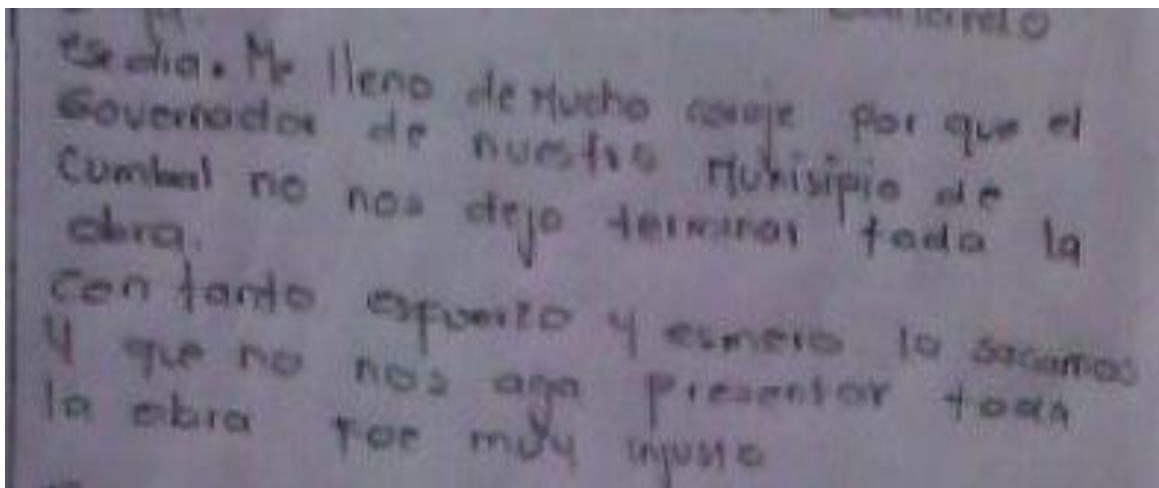 ese dia. Me lleno de Mucho coraje por que el
Governador de nuestro Munisipio de
Cumbal no nos dejo terminar toda la
obra.
con tanto esfuerzo y esmero la sacamos
Y que no nos aga presentar toda
la obra Foe muy injusto